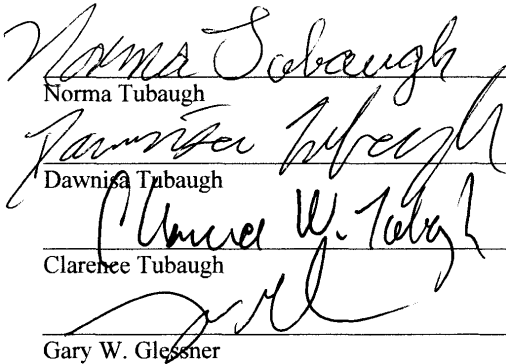 Norma Tubaugh
Norma Tubaugh
Dawnisa Tubaugh
Dawnisa Tubaugh
Clarence W. Tubaugh
Clarence Tubaugh
Gary W. Glessner